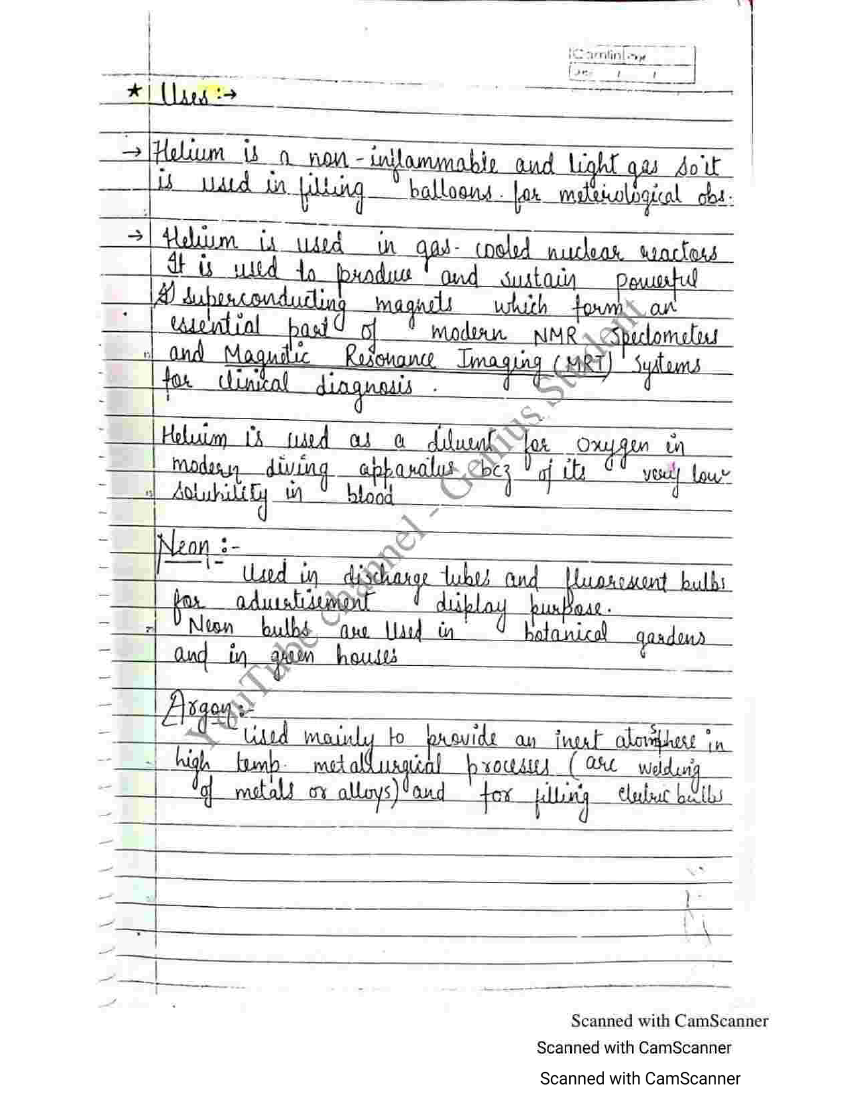 Camlin Page
Date / /
* Uses :→
→ Helium is a non-inflammable and light gas so it
is used in filling balloons for meteirological obs.
→ Helium is used in gas-cooled nuclear reactors
It is used to produce and sustain powerful
superconducting magnets which form an
essential part of modern NMR Spectometers
and Magnetic Resonance Imaging (MRI) Systems
for clinical diagnosis.
Heluim is used as a diluent for oxygen in
modern diving apparatus bcz of its very low
solubility in blood
Neon :-
Used in discharge tubes and fluorescent bulbs
for advertisement display purpose.
Neon bulbs are used in botanical gardens
and in green houses
Argon :-
Used mainly to provide an inert atomsphere in
high temp. metallurgical processes (arc welding
of metals or alloys) and for filling electric bulbs
YouTube channel - Genius Student
Scanned with CamScanner
Scanned with CamScanner
Scanned with CamScanner